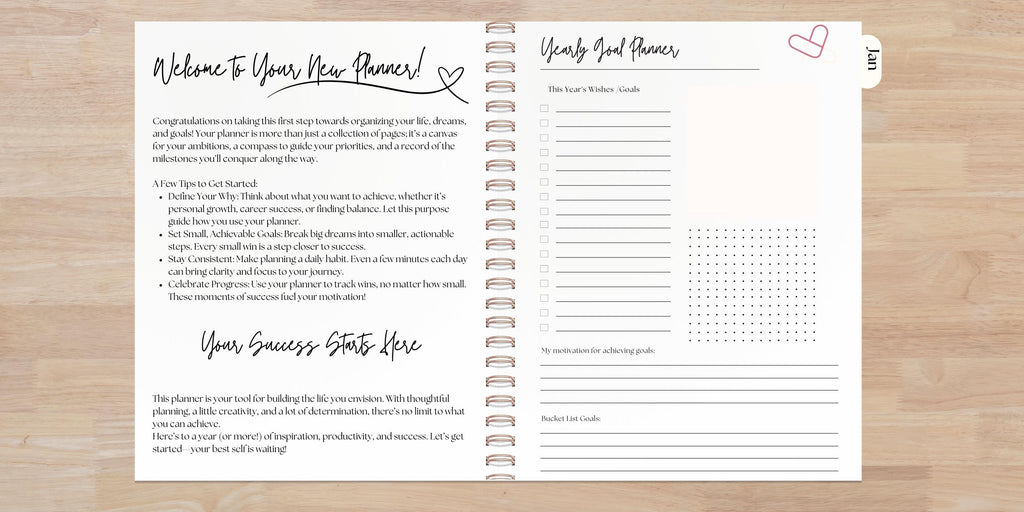 Welcome To Your New Planner!
Congratulations on taking this first step towards organizing your life, dreams,
and goals! Your planner is more than just a collection of pages; it's a canvas
for your ambitions, a compass to guide your priorities, and a record of the
milestones you'll conquer along the way.
A Few Tips to Get Started:
• Define Your Why: Think about what you want to achieve, whether it's
personal growth, career success, or finding balance. Let this purpose
guide how you use your planner.
• Set Small, Achievable Goals: Break big dreams into smaller, actionable
steps. Every small win is a step closer to success.
• Stay Consistent: Make planning a daily habit. Even a few minutes each day
can bring clarity and focus to your journey.
• Celebrate Progress: Use your planner to track wins, no matter how small.
These moments of success fuel your motivation!
Your Success Starts Here
This planner is your tool for building the life you envision. With thoughtful
planning, a little creativity, and a lot of determination, there's no limit to what
you can achieve.
Here's to a year (or more!) of inspiration, productivity, and success. Let's get
started—your best self is waiting!
Yearly Goal Planner
This Year's Wishes /Goals
My motivation for achieving goals:
Bucket List Goals:
Jan